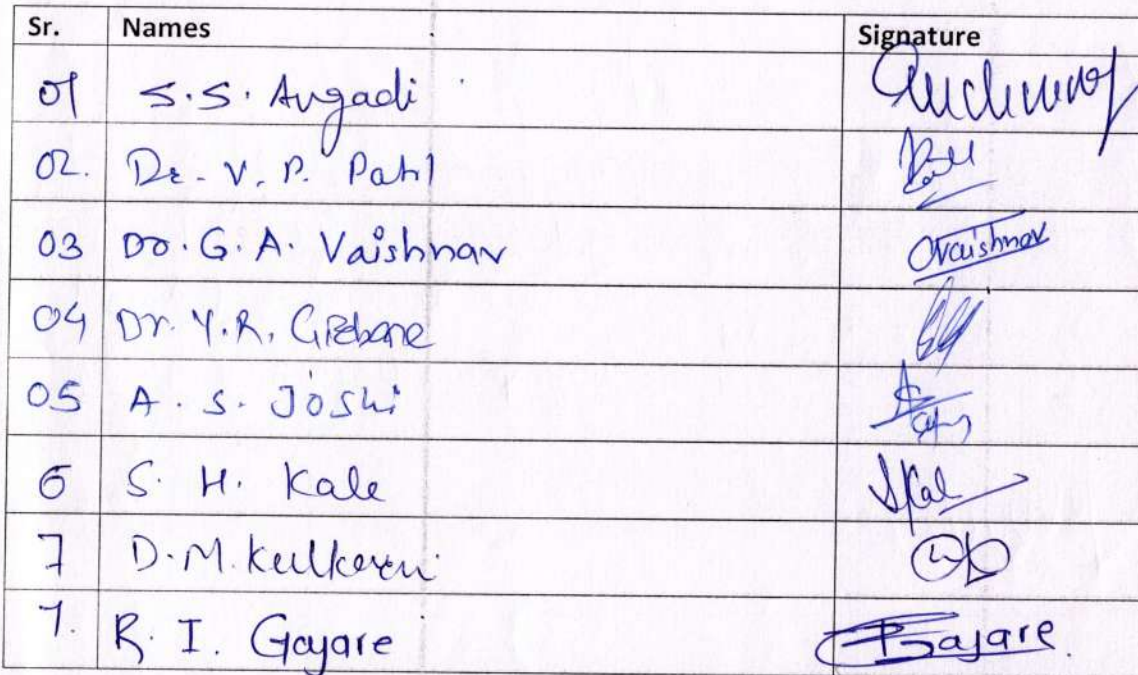 Sr. Names Signature
01 S.S. Angadi
02. Dr. V. P. Patil
03 Dr. G. A. Vaishnav Vaishnav
04 Dr. Y. R.
05 A. S. Joshi
6 S. H. Kale SKale
7 D. M. Kulkarni
7. R. I. Gajare Gajare